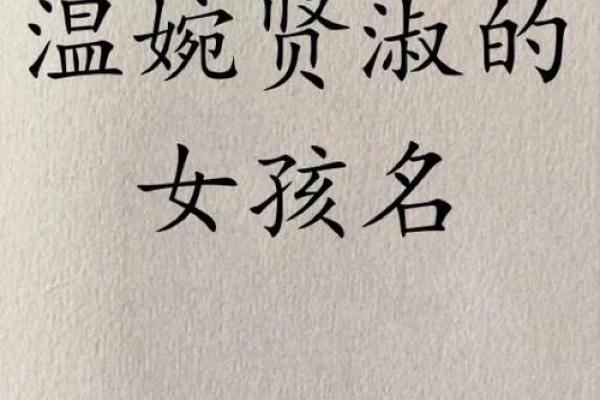 温婉贤淑的
女孩名